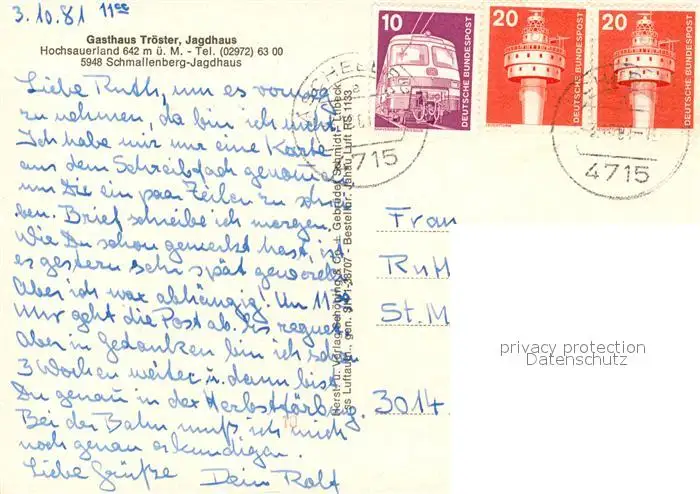 3.10.81 11ºº
Gasthaus Tröster, Jagdhaus
Hochsauerland 642 m ü. M. - Tel. (02972) 63 00
5948 Schmallenberg-Jagdhaus
Liebe Ruth, um es vorweg
zu nehmen, da bin ich nicht.
Ich habe mir nur eine Karte
aus dem Schreibfach genommen
um Dir ein paar Zeilen zu schrei-
ben. Brief schreibe ich morgen.
Wie Du schon gemerkt hast, ist
es gestern sehr spät geworden.
Aber ich war abhängig! Um 11
Uhr geht die Post ab. Es regnet
Aber in Gedanken bin ich schon
3 Wochen weiter u. dann bist
Du genau in der Herbstfärbung.
Bei der Bahn muß ich mich
noch genau erkundigen.
Liebe Grüße Dein Rolf
10
DEUTSCHE BUNDESPOST
20
DEUTSCHE BUNDESPOST
20
DEUTSCHE BUNDESPOST
4715
4715
Herst. u. Verlag Schöning & Co + Gebrüder Schmidt, Lübeck
Luftaufn., gen. SH 1133
Frau
Ruth
St. M
3014
privacy protection
Datenschutz